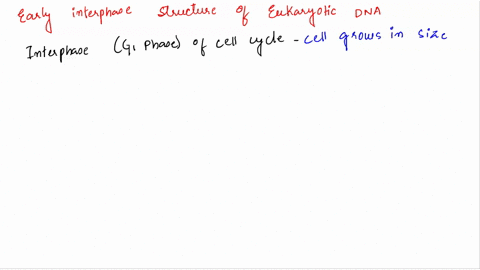 Early interphase structure of Eukaryotic DNA
Interphase (G1 Phase) of cell cycle - cell grows in size